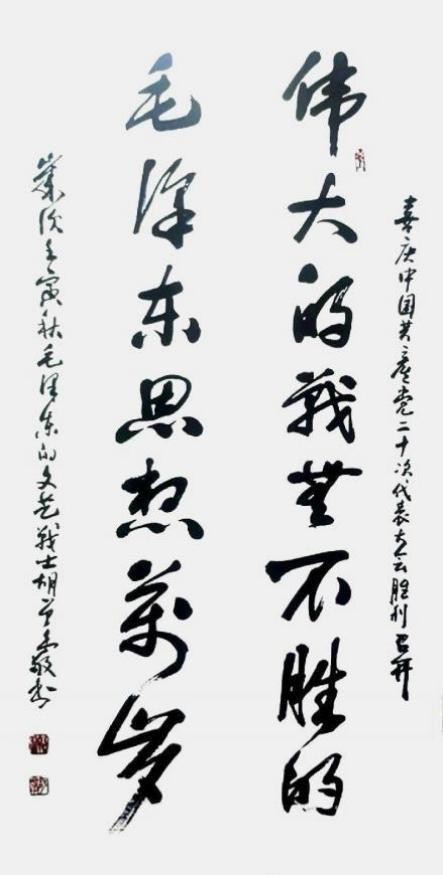 喜庆中国共產党二十次代表大会胜利召开
伟大的戰無不胜的
毛泽东思想萬岁
歲次壬寅秋毛泽东的文艺戰士胡 敬书